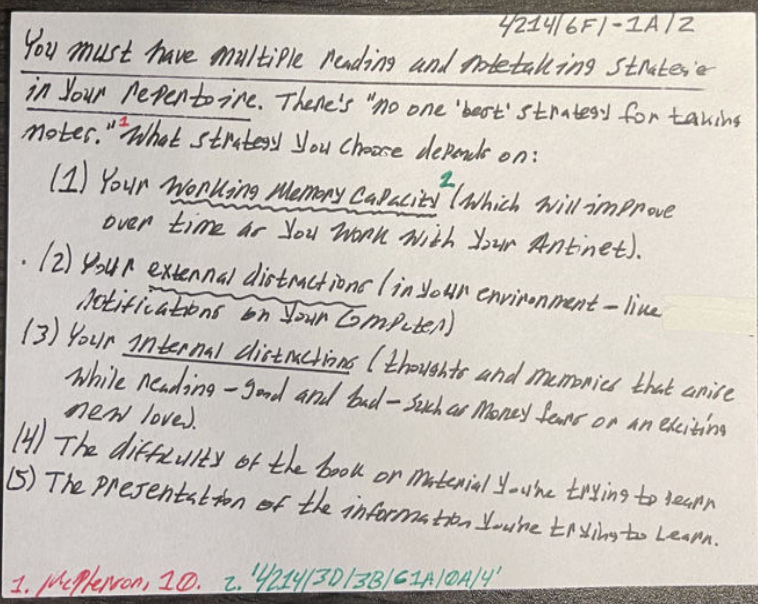 4214/6F/-1A/2
You must have multiple reading and notetaking strategie
in your repertoire. There's "no one 'best' strategy for taking
notes."1 What strategy you choose depends on:
(1) Your working memory capacity2 (which will improve
over time as you work with your Antinet).
(2) Your external distractions (in your environment – like
notifications on your computer)
(3) Your internal distractions (thoughts and memories that arise
while reading – good and bad – such as money fears or an exciting
new love).
(4) The difficulty of the book or material you're trying to learn
(5) The presentation of the information you're trying to learn.
1. McPherson, 10. 2. '4214/3D/3B/61A/0A/4'